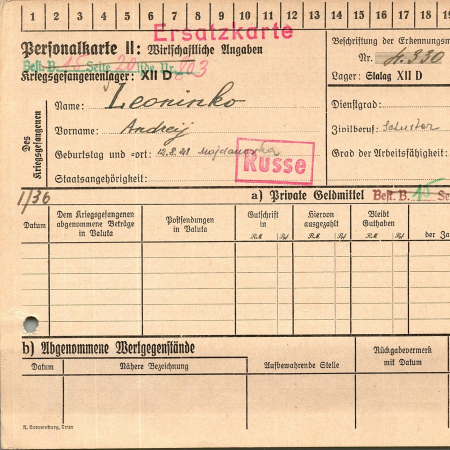 1 2 3 4 5 6 7 8 9 10 11 12 13 14 15 16 17 18 19
Ersatzkarte
Personalkarte II: Wirtschaftliche Angaben
Best. B. 15 Seite 20 lfde. Nr. 203
Kriegsgefangenenlager: XII D
Beschriftung der Erkennungsm
Nr. 330
Lager: Stalag XII D
Des Kriegsgefangenen
Name: Leoninko
Vorname: Andreij
Geburtstag und -ort: 12.8.21 Majdanowka
Russe
Staatsangehörigkeit:
Dienstgrad:
Zivilberuf: Schuster
Grad der Arbeitsfähigkeit:
1/36
a) Private Geldmittel Best. B. 15 Se
Datum
Dem Kriegsgefangenen abgenommene Beträge in Valuta
Postsendungen in Valuta
Gutschrift in
RM Pf
Hiervon ausgezahlt
RM Pf
Bleibt Guthaben
RM Pf
der Za
b) Abgenommene Wertgegenstände
Datum
Nähere Bezeichnung
Aufbewahrende Stelle
Rückgabevermerk mit Datum
R. Sonnenburg, Trier